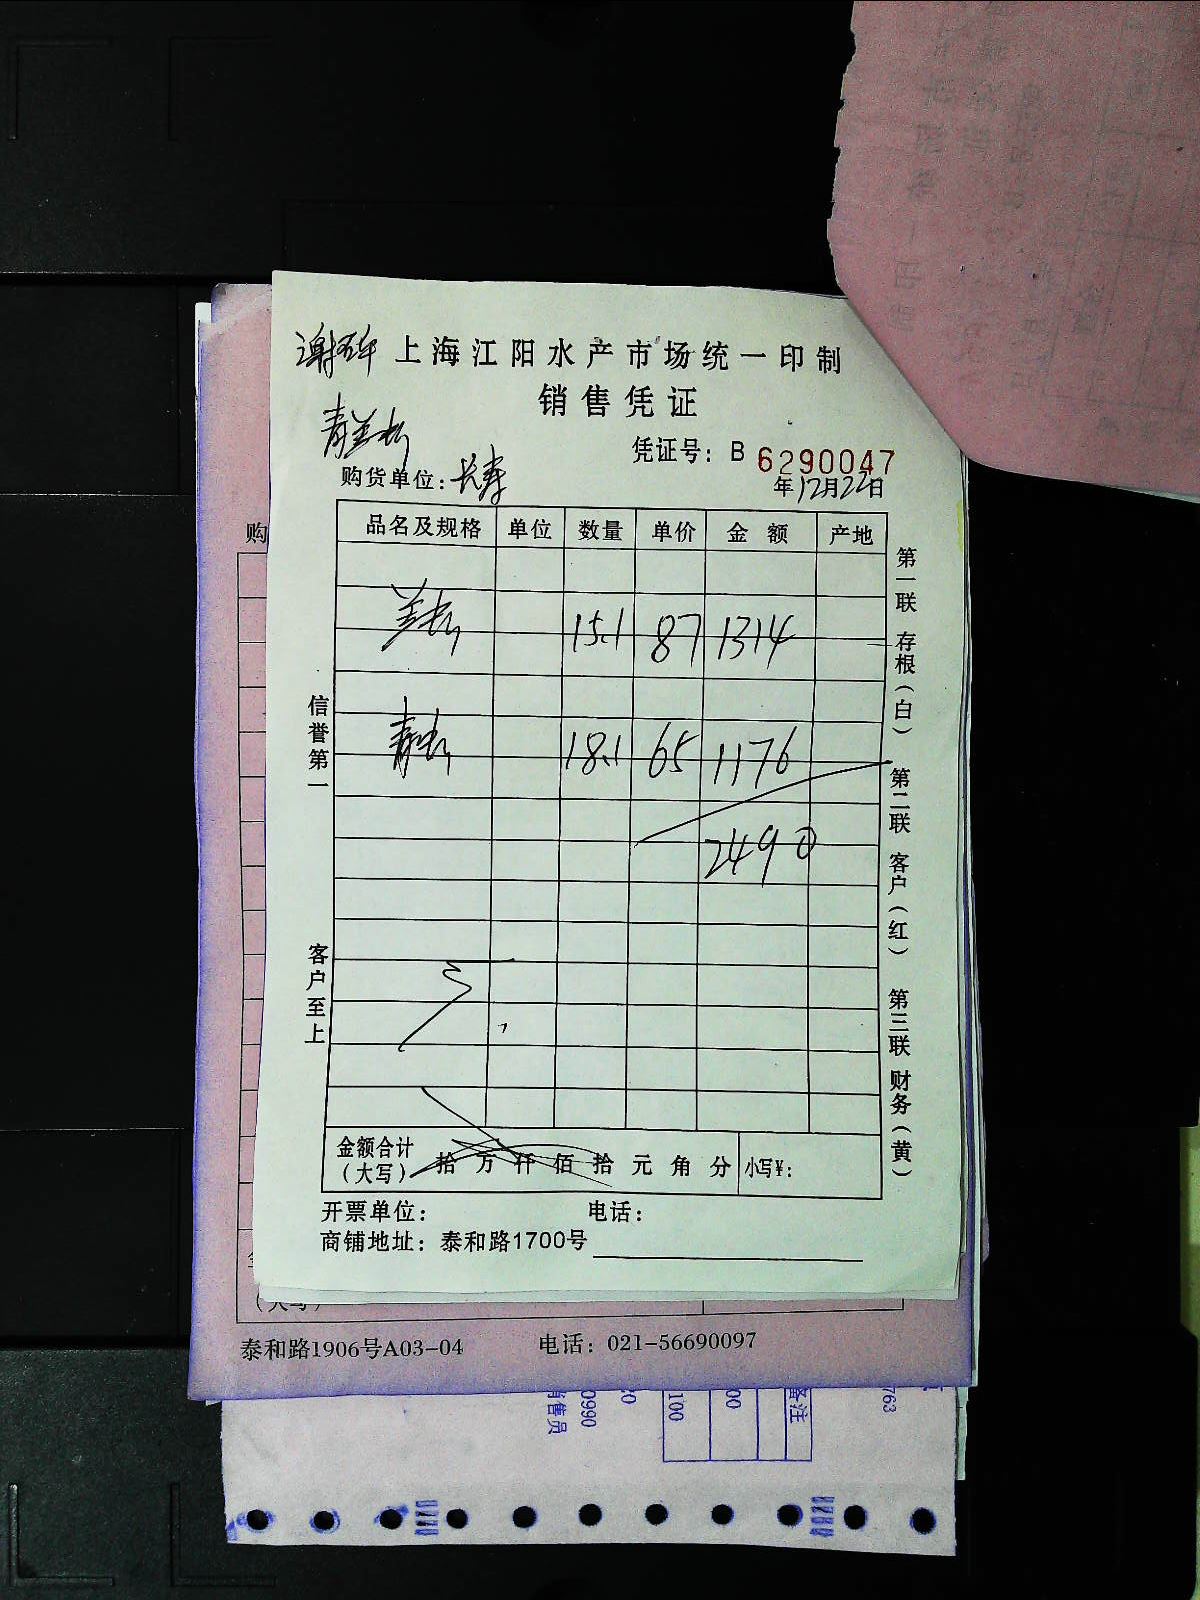 上海江阳水产市场统一印制
销售凭证
凭证号：B 6290047
购货单位：长寿
年12月22日
品名及规格 单位 数量 单价 金额 产地
15.1 87 1314
18.1 65 1176
2490
金额合计（大写） 拾 万 仟 佰 拾 元 角 分 小写¥：
开票单位： 电话：
商铺地址：泰和路1700号
信誉第一
客户至上
第一联 存根（白） 第二联 客户（红） 第三联 财务（黄）
购
（大写）
泰和路1906号A03-04 电话：021-56690097
销售员
0990
20
100
00
备注
763